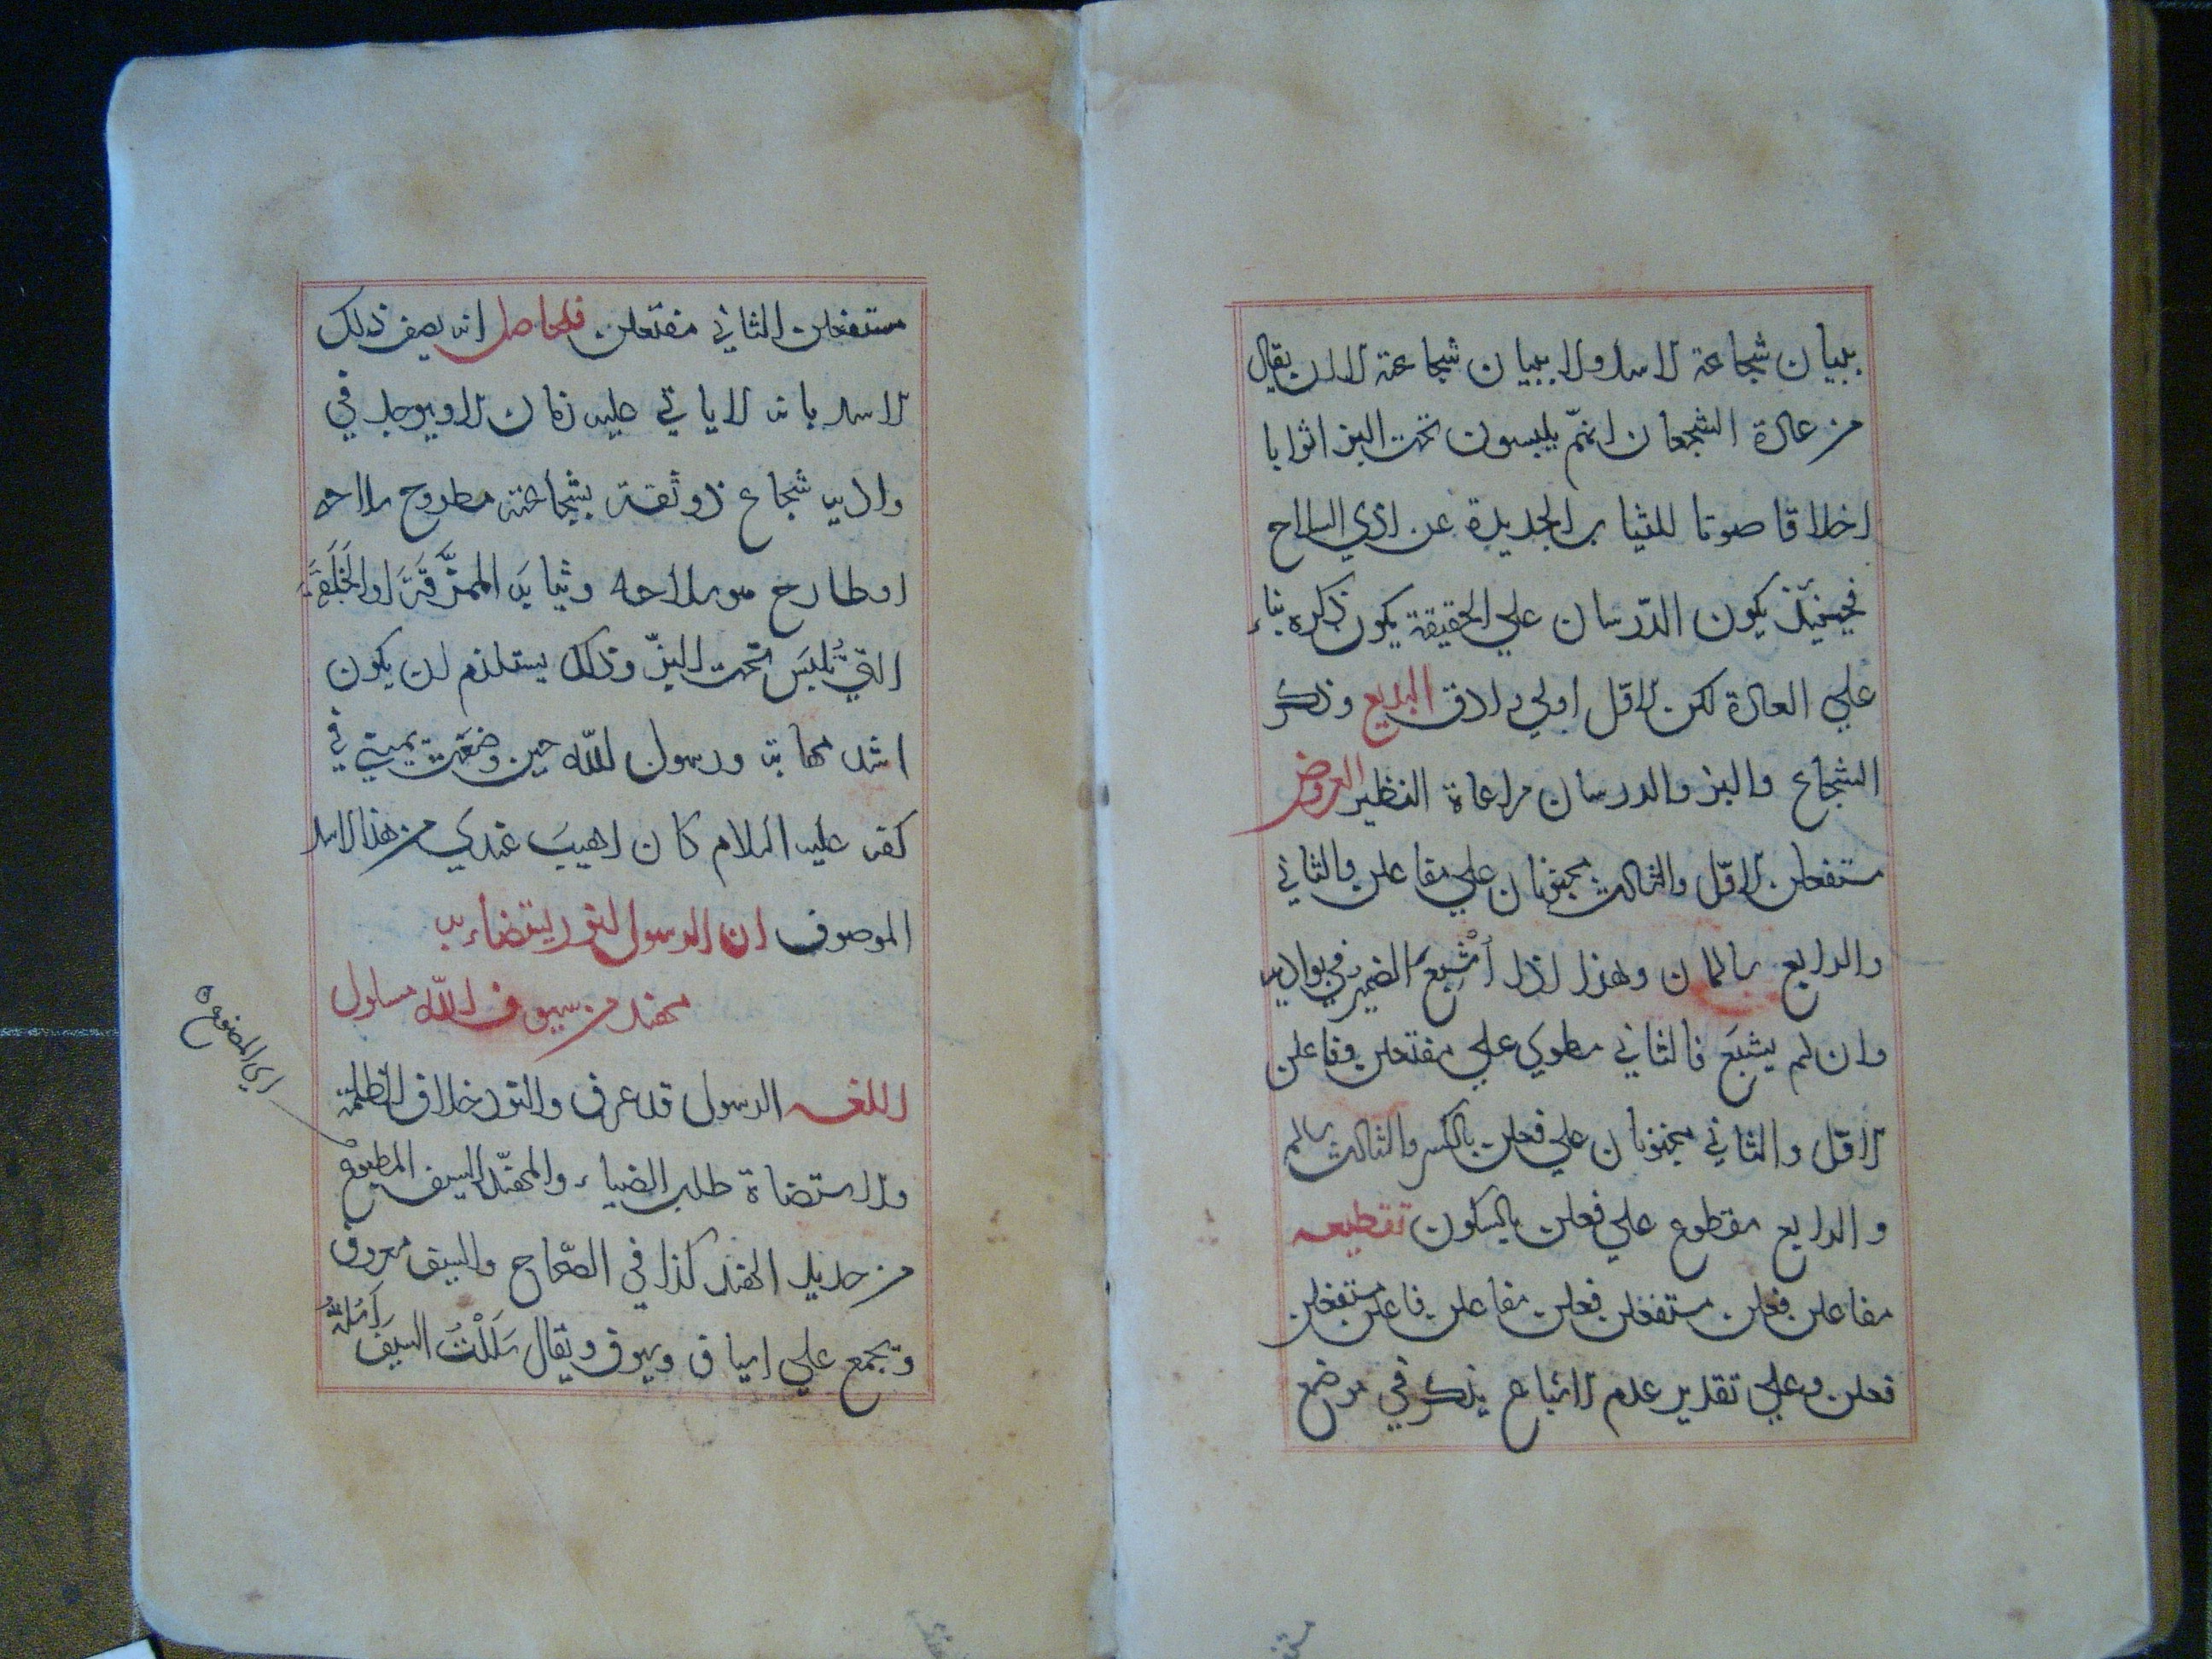 ببيان شجاعة الاسد ولا ببيان شجاعة الا ان يقال
من عادة الشجعان انهم يلبسون تحت البز اثوابا
اخلاقا صونا للثياب الجديدة عن اذي السلاح
فحينئذ يكون الدرسان علي الحقيقة يكون ذكره بناء
علي العادة لكن الاول اولي والاق البديع وذكر
الشجاع والبز والدرسان مراعاة النظير العروض
مستفعلن الاول والثالث مخبونان علي مفاعلن والثاني
والرابع سالمان وهذا اذا اُشْبِعَ الضمير في بواديه
وان لم يشبع فالثاني مطوي علي مفتعلن وفاعلن
الاول والثاني مخبونان علي فعلن بالكسر والثالث سالم
والرابع مقطوع علي فعلن بالسكون تقطيعه
مفاعلن فعلن مستفعلن فعلن مفاعلن فاعلن مستفعلن
فعلن وعلي تقدير عدم الاشباع يذكر في موضع
مستفعلن الثاني مفتعلن فالحاصل انه يصف ذلك
الاسد بانه لا ياتي عليه زمان الا ويوجد في
واديه شجاع ذو ثقة بشجاعته مطروح سلاحه
او طارح هو سلاحه وثيابه الممزَّقَة او الخَلَقَة
التي تُلبَس تحت البزّ وذلك يستلزم ان يكون
اشد مهابة ورسول الله حين وضعت يميني في
كفه عليه السلام كان اهيبَ عندي من هذا الاسد
الموصوف ان الرسول لنور يستضاء به
مهند من سيوف الله مسلول
اللغة الرسول قد عرف والنور خلاف الظلمة
والاستضاة طلب الضياء والمهنّد السيف المطبوع
من حديد الهند كذا في الصّحاح والسيف معروف
وتجمع علي اسياف وسيوف ويقال سَلَلْتُ السيفَ اَسُلُّهُ
اي المصنوع